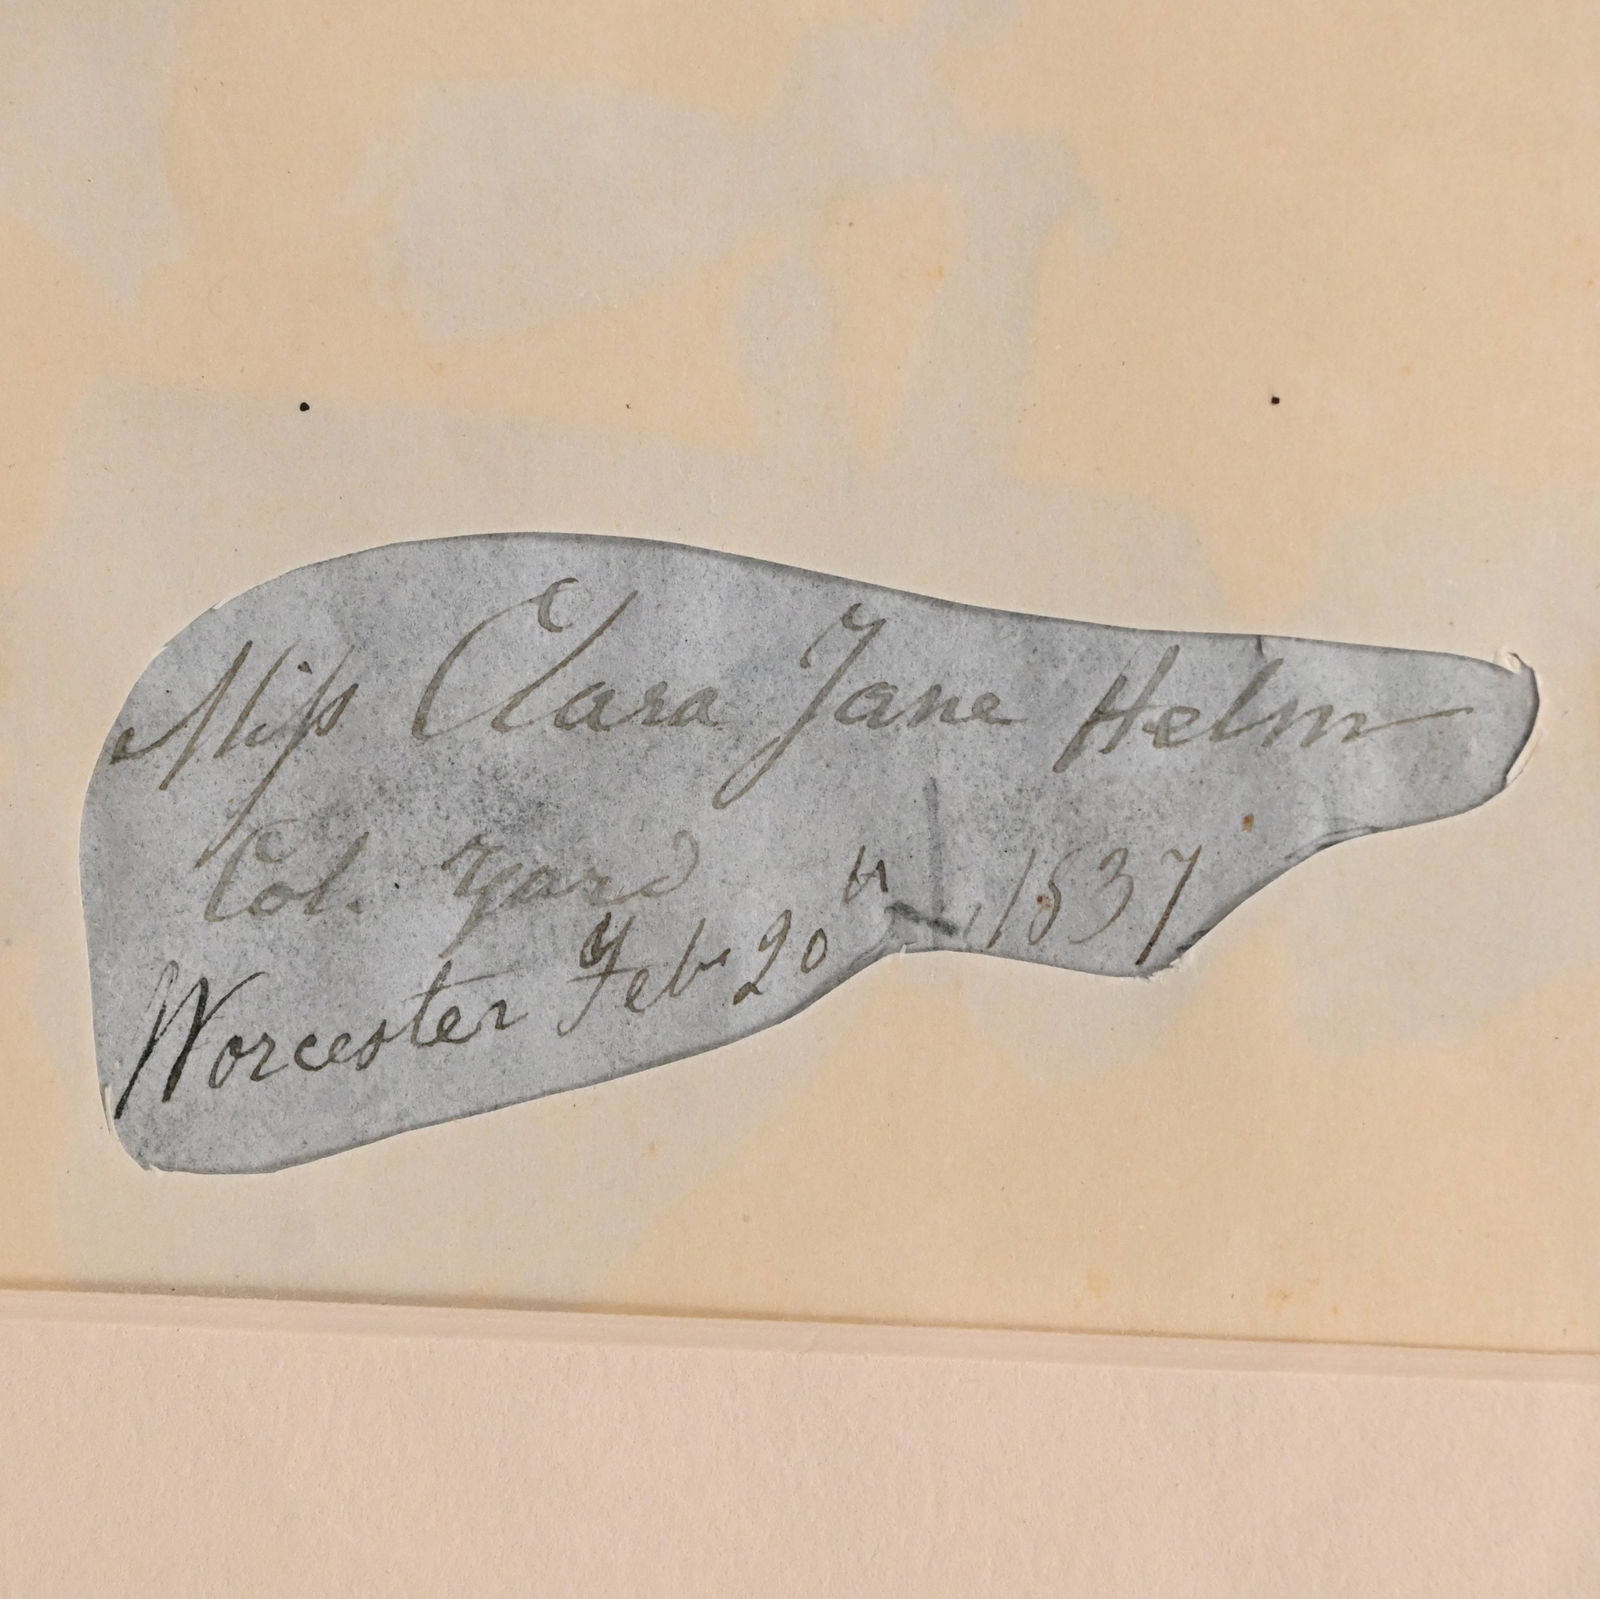 Miss Clara Jane Helm
Col. Yard
Worcester Feb 20th, 1837